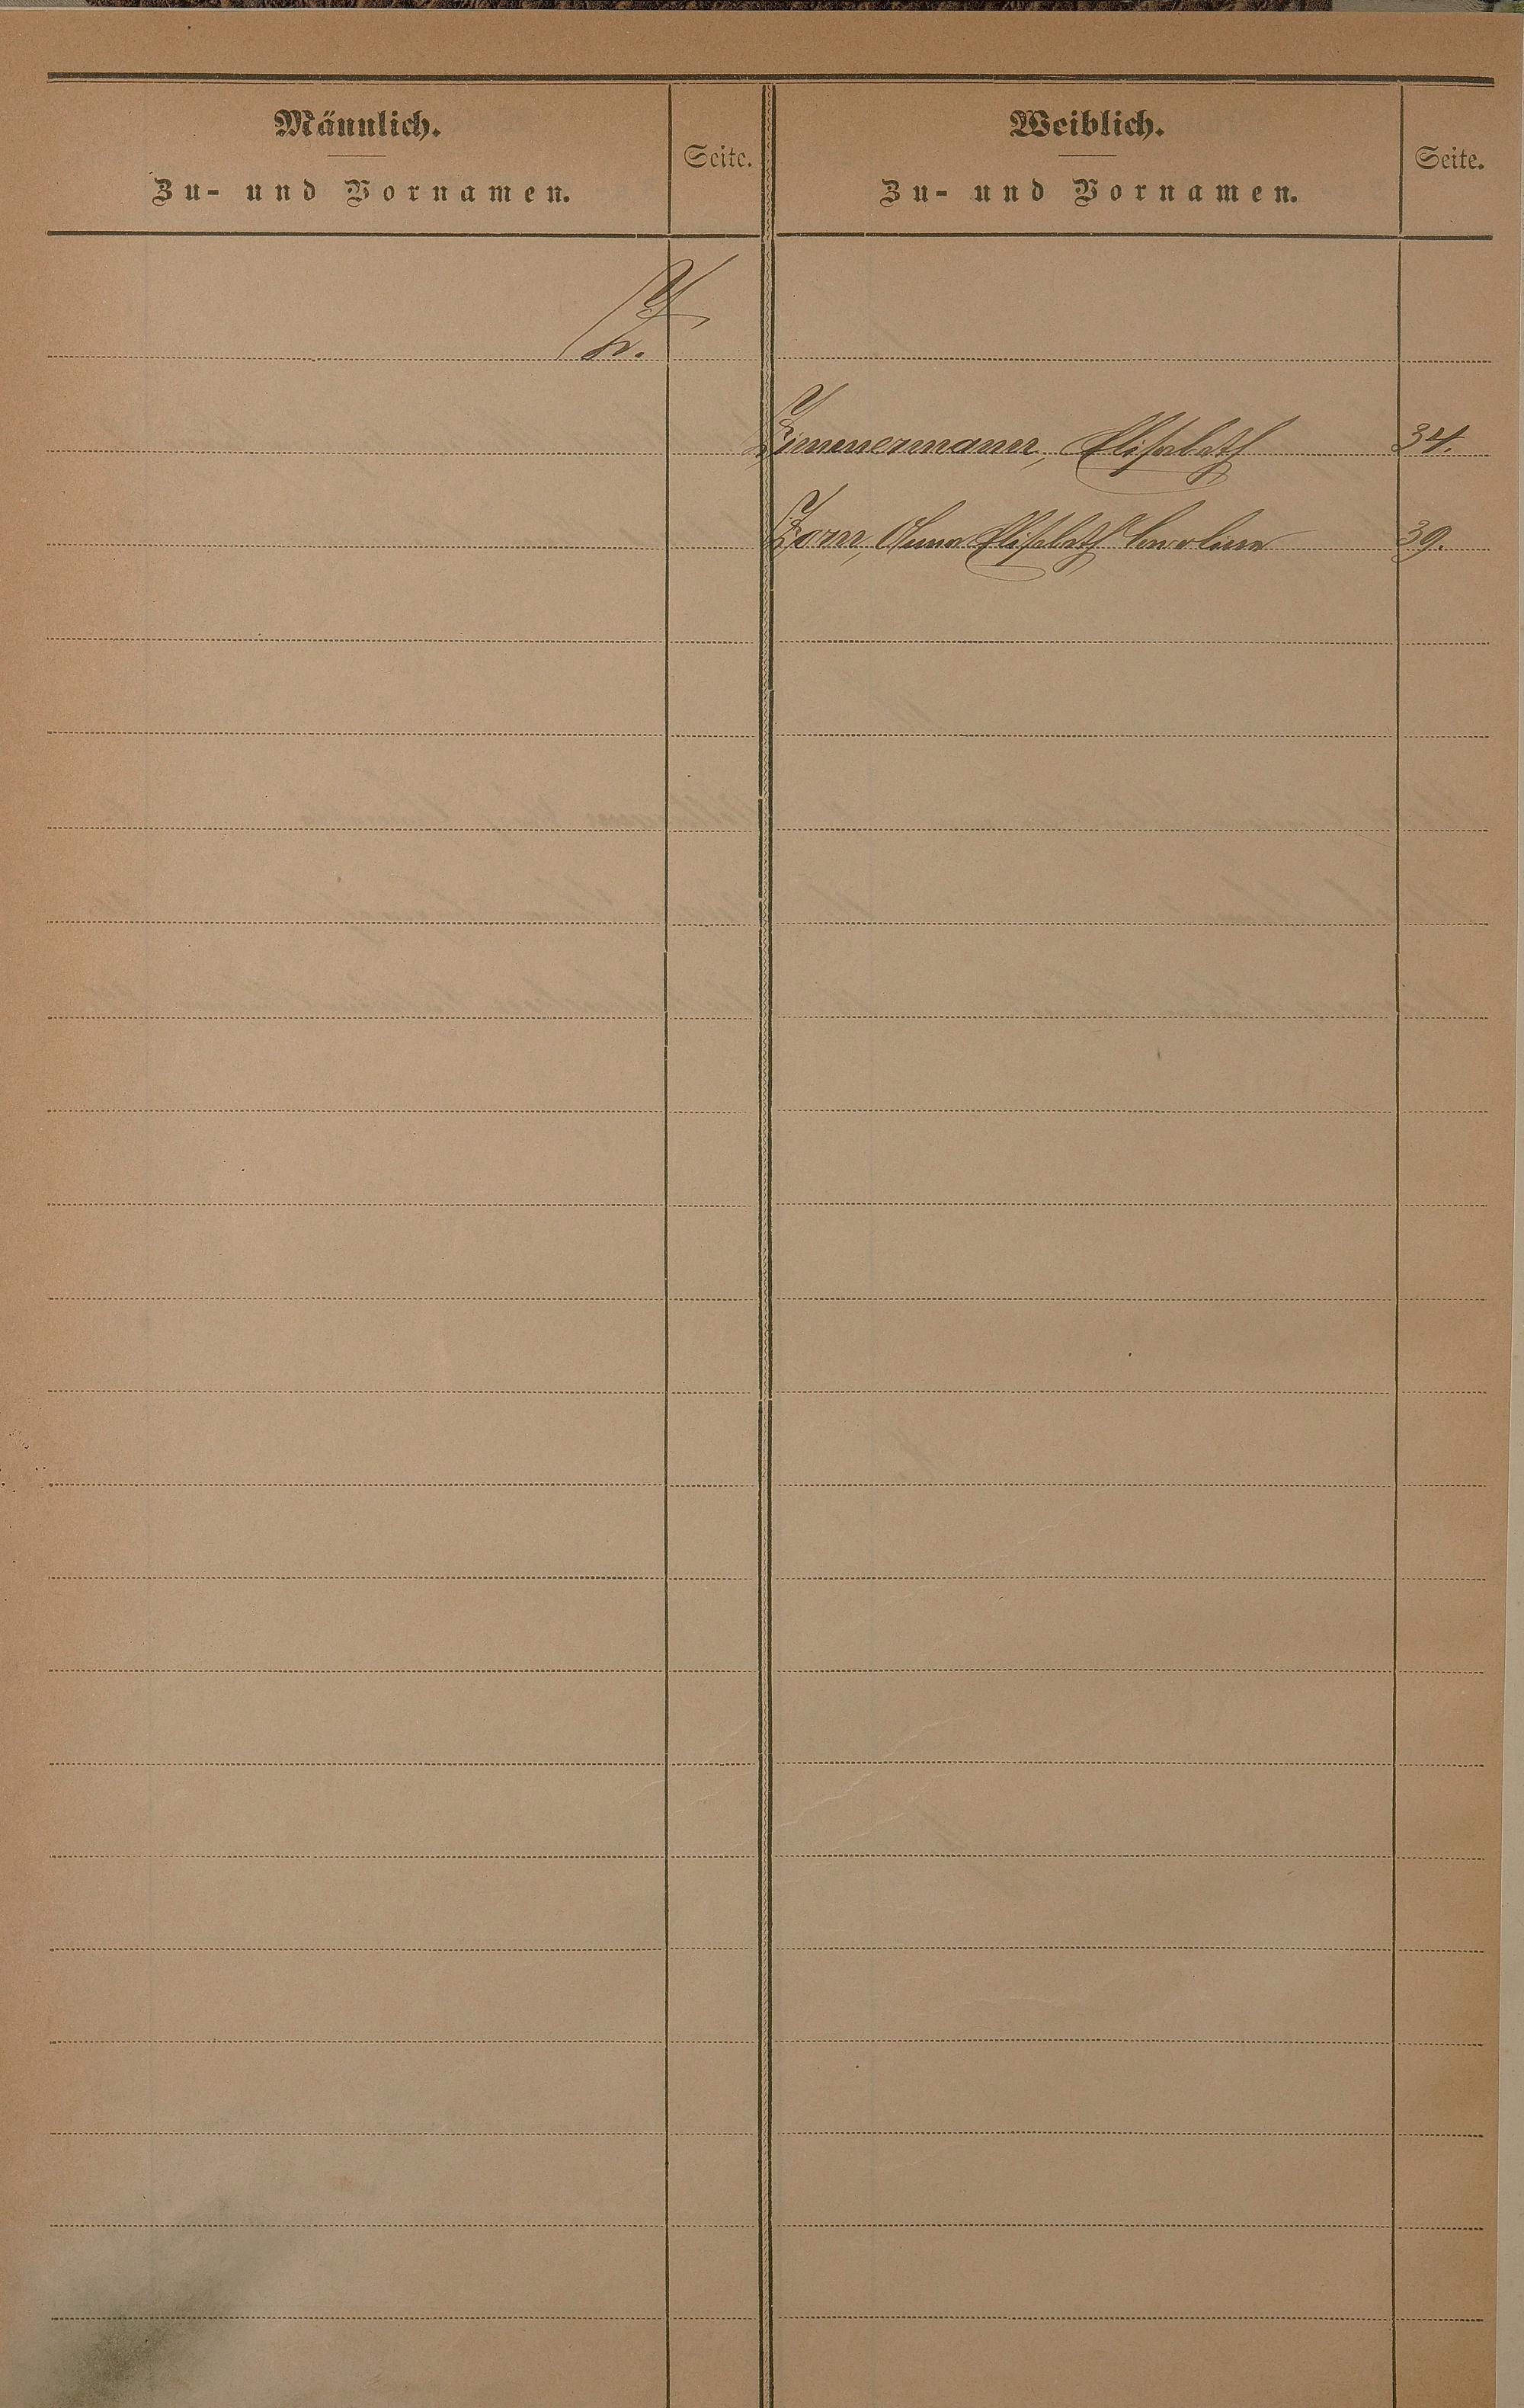 Männlich.
Zu- und Vornamen.
Seite.
Weiblich.
Zu- und Vornamen.
Seite.
Z.
Zimmermann, Elisabeth 34.
Zorn, Anna Elisabeth Carolina 39.